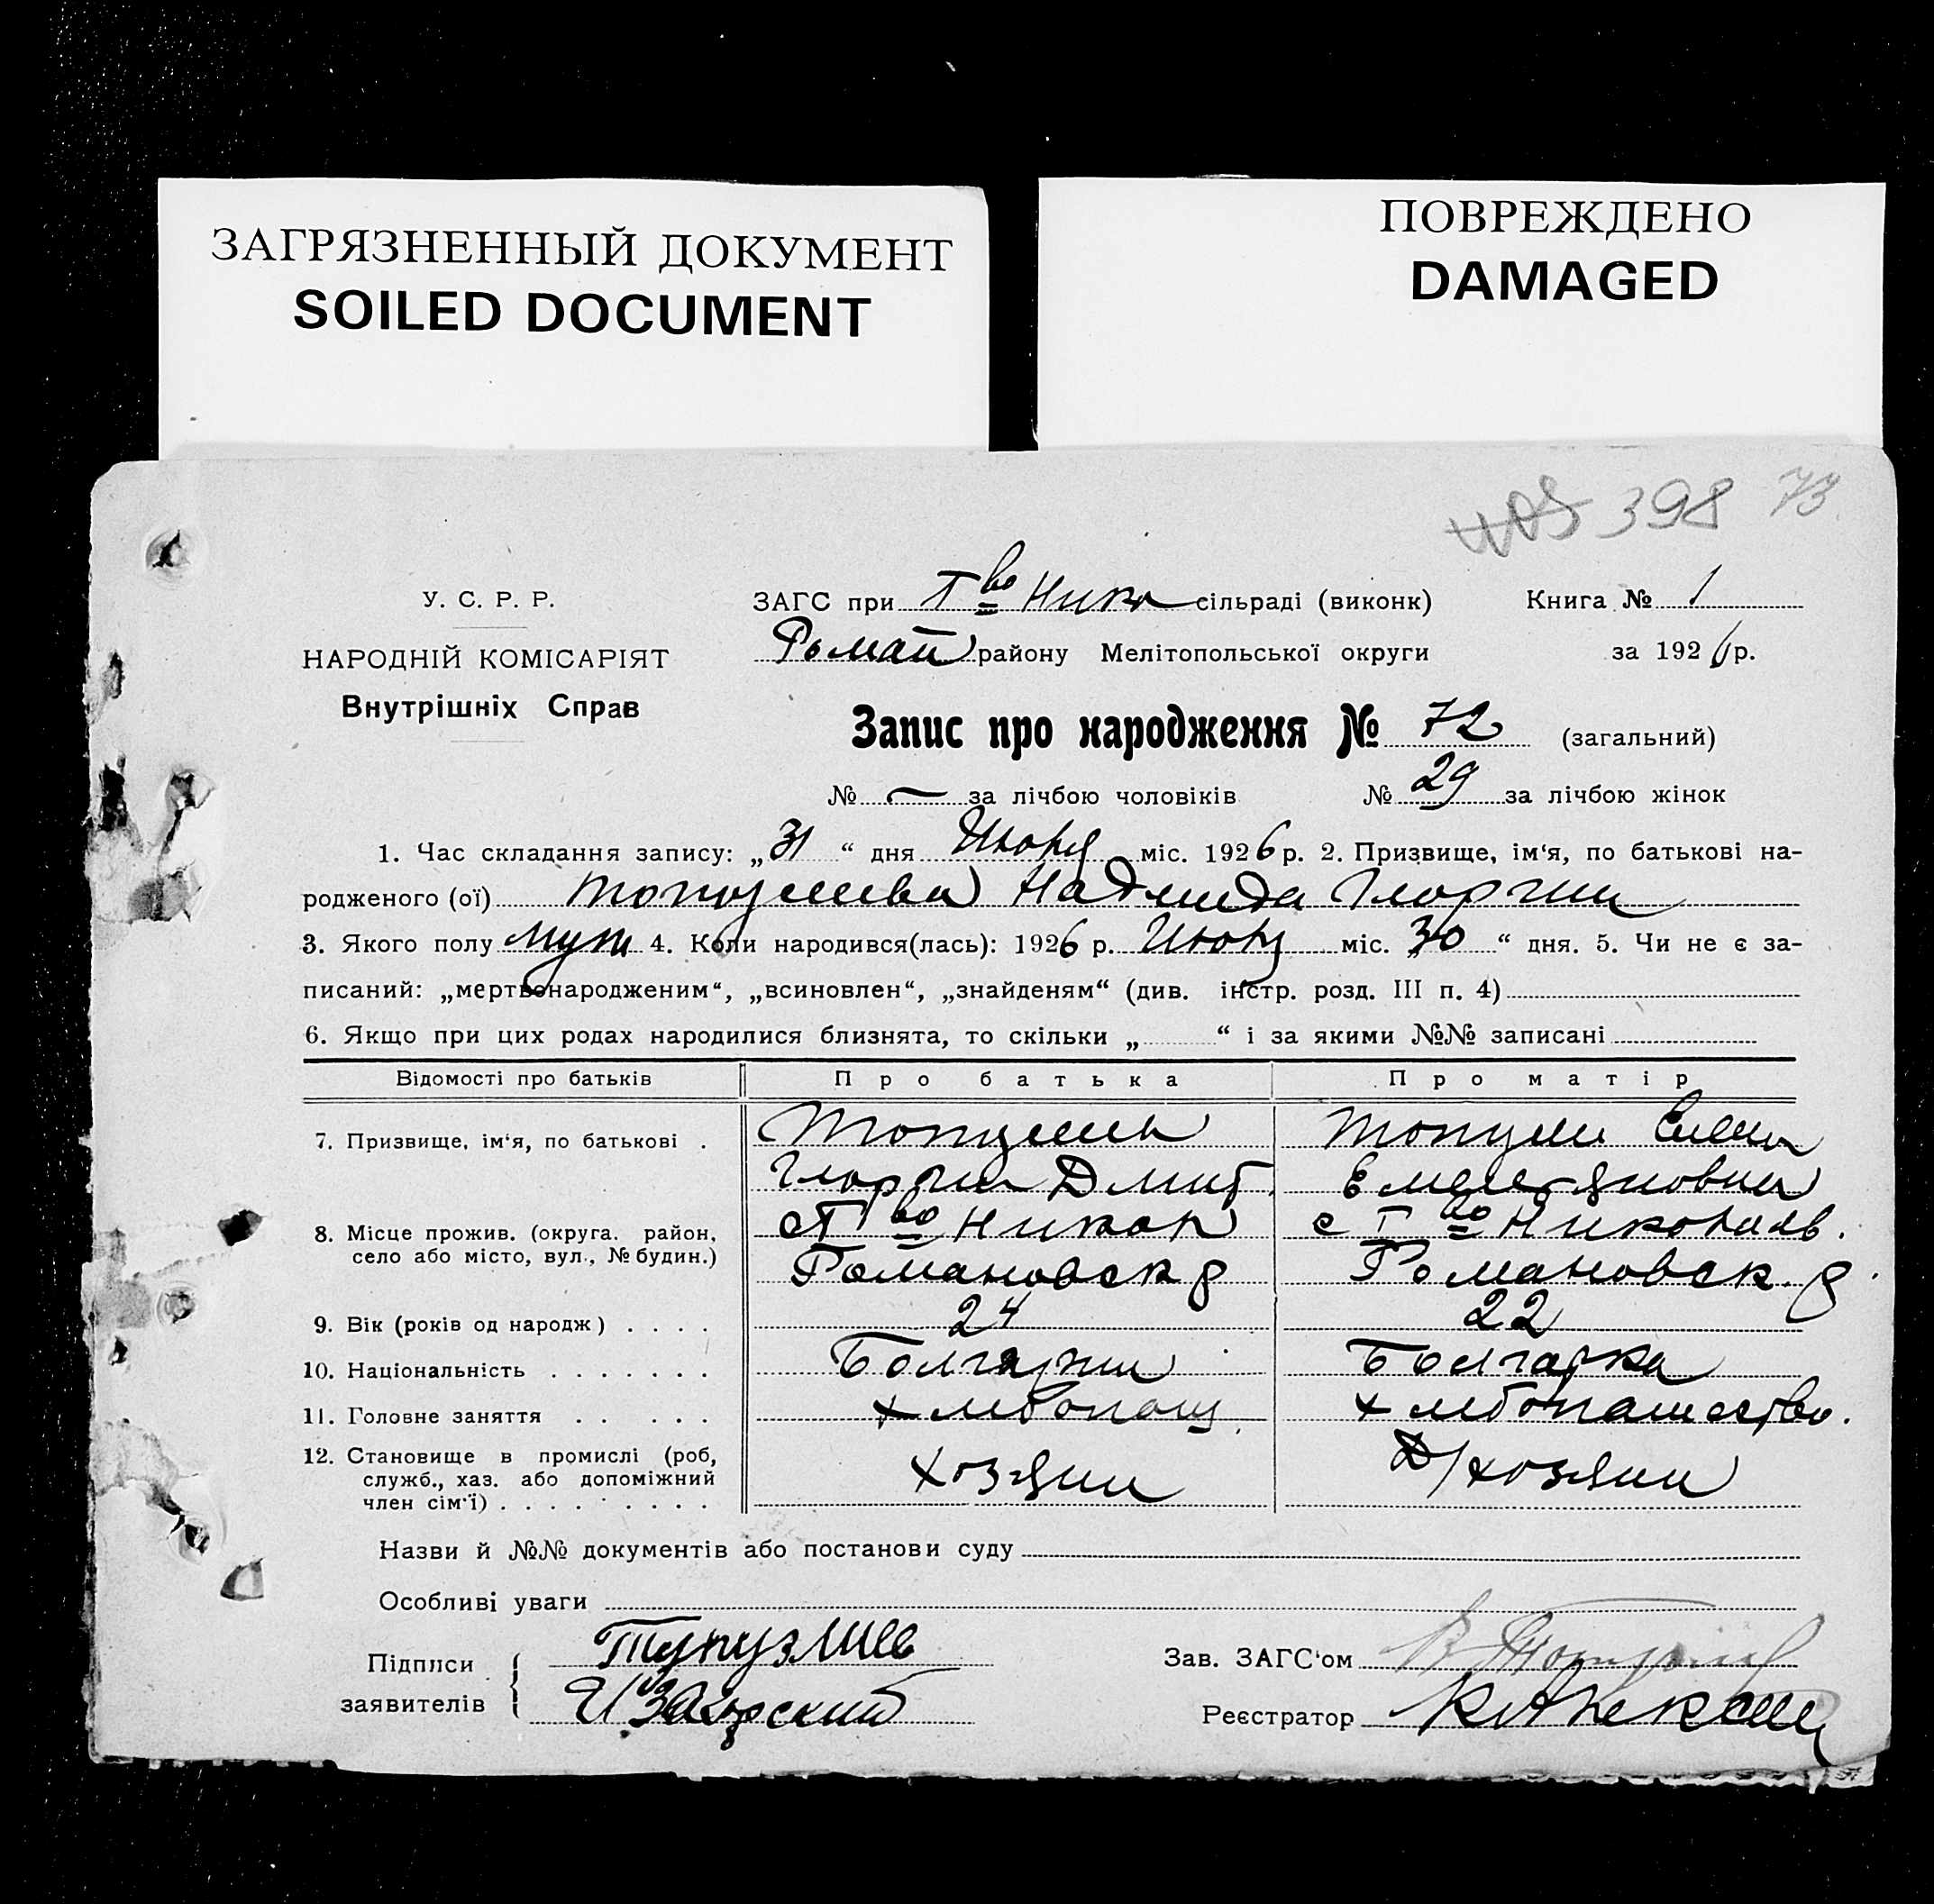 ЗАГРЯЗНЕННЫЙ ДОКУМЕНТ
SOILED DOCUMENT
ПОВРЕЖДЕНО
DAMAGED
398 73
У. С. Р. Р.
НАРОДНІЙ КОМІСАРІЯТ
Внутрішніх Справ
ЗАГС при Т во Нико сільраді (виконк) Книга № 1
району Мелітопольської округи за 1926 р.
Запис про народження № 72 (загальний)
№ — за лічбою чоловіків № 29 за лічбою жінок
1. Час складання запису: „31“ дня міс. 1926 р. 2. Призвище, ім‘я, по батькові на-
родженого (ої) Надежда Георги
3. Якого полу 4. Коли народився(лась): 1926 р. міс. „30“ дня. 5. Чи не є за-
писаний: „мертвонародженим“, „всиновлен“, „знайденям“ (див. інстр. розд. III п. 4)
6. Якщо при цих родах народилися близнята, то скільки „ “ і за якими №№ записані
Відомості про батьків Про батька Про матір
7. Призвище, ім‘я, по батькові .
Георги Дмит. Емельяновна
8. Місце прожив. (округа. район, село або місто, вул., № будин.)
с Т во Никоп с Т во Никопольв.
Романовск р Романовск. р.
9. Вік (років од народж) . . . . 24 22
10. Національність . . . . . . . Болгарин Болгарка
11. Головне заняття . . . . . хлебопаш. хлебопашество.
12. Становище в промислі (роб, служб., хаз. або допоміжний член сім‘ї) . . . . . . . . . хозяин Д/хозяин
Назви й №№ документів або постанови суду
Особливі уваги
Підписи заявителів { Зав. ЗАГС‘ом
Реєстратор